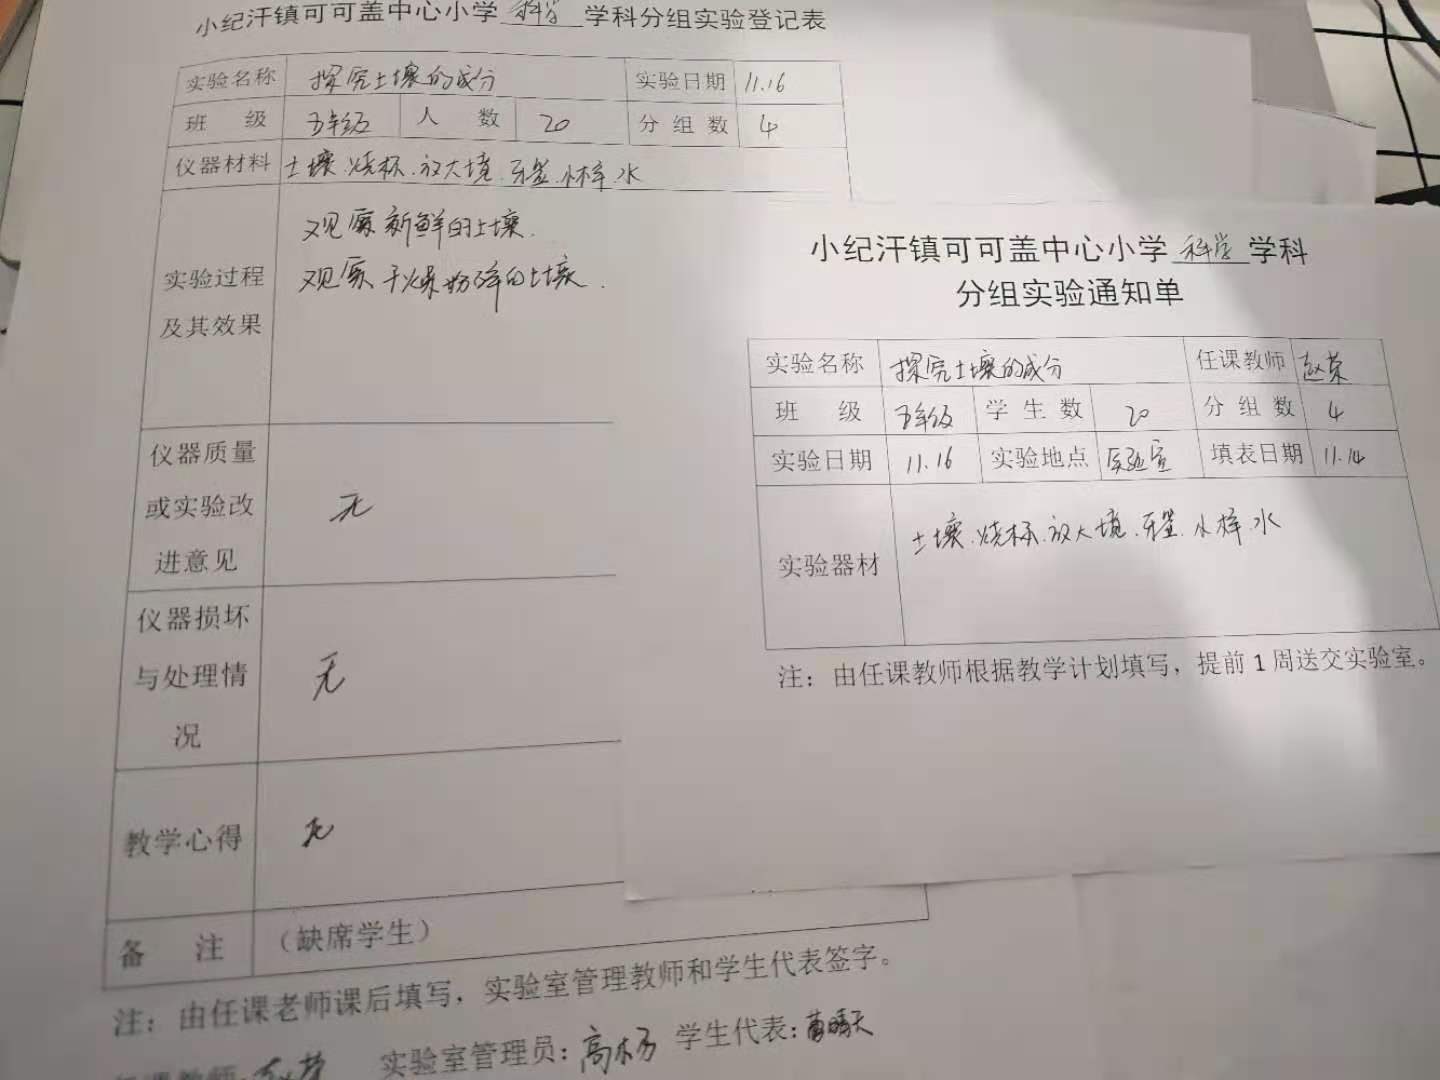 小纪汗镇可可盖中心小学 科学 学科分组实验登记表
实验名称 探究土壤的成分 实验日期 11.16
班 级 五年级 人 数 20 分组数 4
仪器材料 土壤.烧杯.放大境.牙签.木棒.水
实验过程及其效果
观察新鲜的土壤.
观察干燥的土壤.
仪器质量或实验改进意见 无
仪器损坏与处理情况 无
教学心得 无
备 注 (缺席学生)
注：由任课老师课后填写，实验室管理教师和学生代表签字。
实验室管理员：高杨 学生代表：
小纪汗镇可可盖中心小学 科学 学科
分组实验通知单
实验名称 探究土壤的成分 任课教师 赵荣
班 级 五年级 学生数 20 分组数 4
实验日期 11.16 实验地点 实验室 填表日期 11.14
实验器材 土壤.烧杯.放大境.牙签.木棒.水
注：由任课教师根据教学计划填写，提前1周送交实验室。